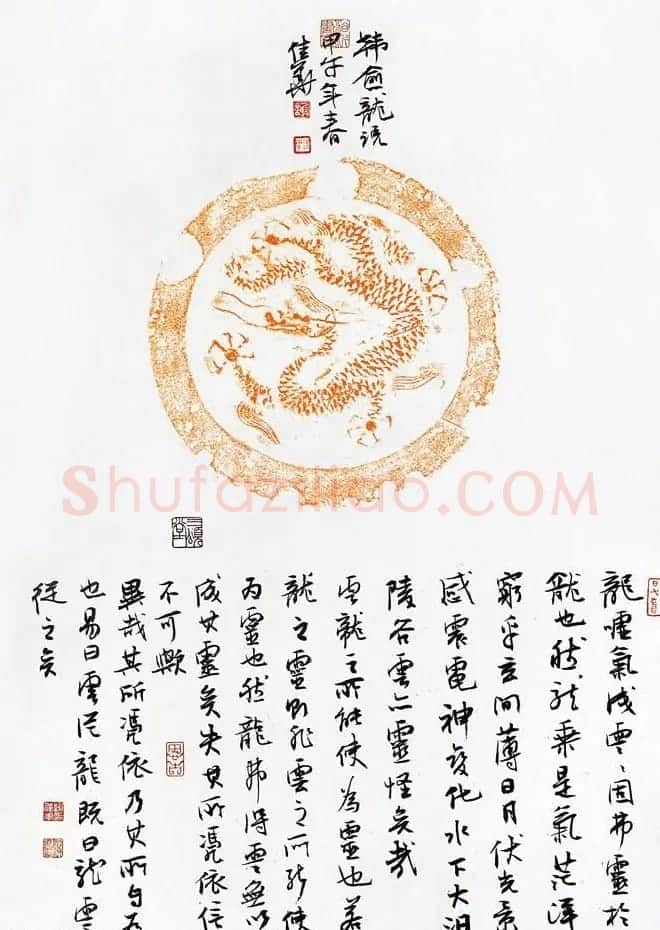 韩愈龍说
甲午年春
佳華
龍嘘氣成雲〻固弗靈於
龍也然龍乘是氣茫洋
窮乎玄间薄日月伏光景
感震電神变化水下土汩
陵谷雲亦靈怪矣哉
雲龍之所能使為靈也若
龍之靈則非雲之所能使
为靈也然龍弗得雲無以
其靈矣失其所憑依信
不可歟
異哉其所憑依乃其所自为
也易曰雲從龍既曰龍雲
從之矣
Shufaziliao.COM